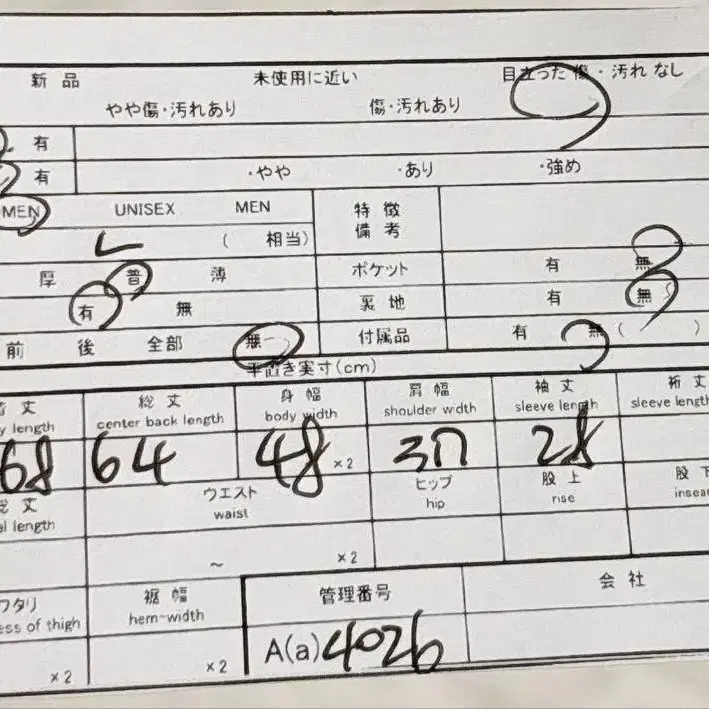 新品 未使用に近い 目立った傷・汚れなし
やや傷・汚れあり 傷・汚れあり
有
有 ・やや ・あり ・強め
MEN UNISEX MEN 特徴
備考
L ( 相当)
厚 普 薄 ポケット 有 無
有 無 裏地 有 無
前 後 全部 無 付属品 有 無 ( )
平置き実寸(cm)
着丈 総丈 身幅 肩幅 袖丈 裄丈
y length center back length body width shoulder width sleeve length sleeve length
68 64 48 ×2 28
総丈 ウエスト ヒップ 股上 股下
al length waist hip rise insea
~ ×2
ワタリ 裾幅 管理番号 会社
ess of thigh hem-width
×2 ×2 A(a)4026